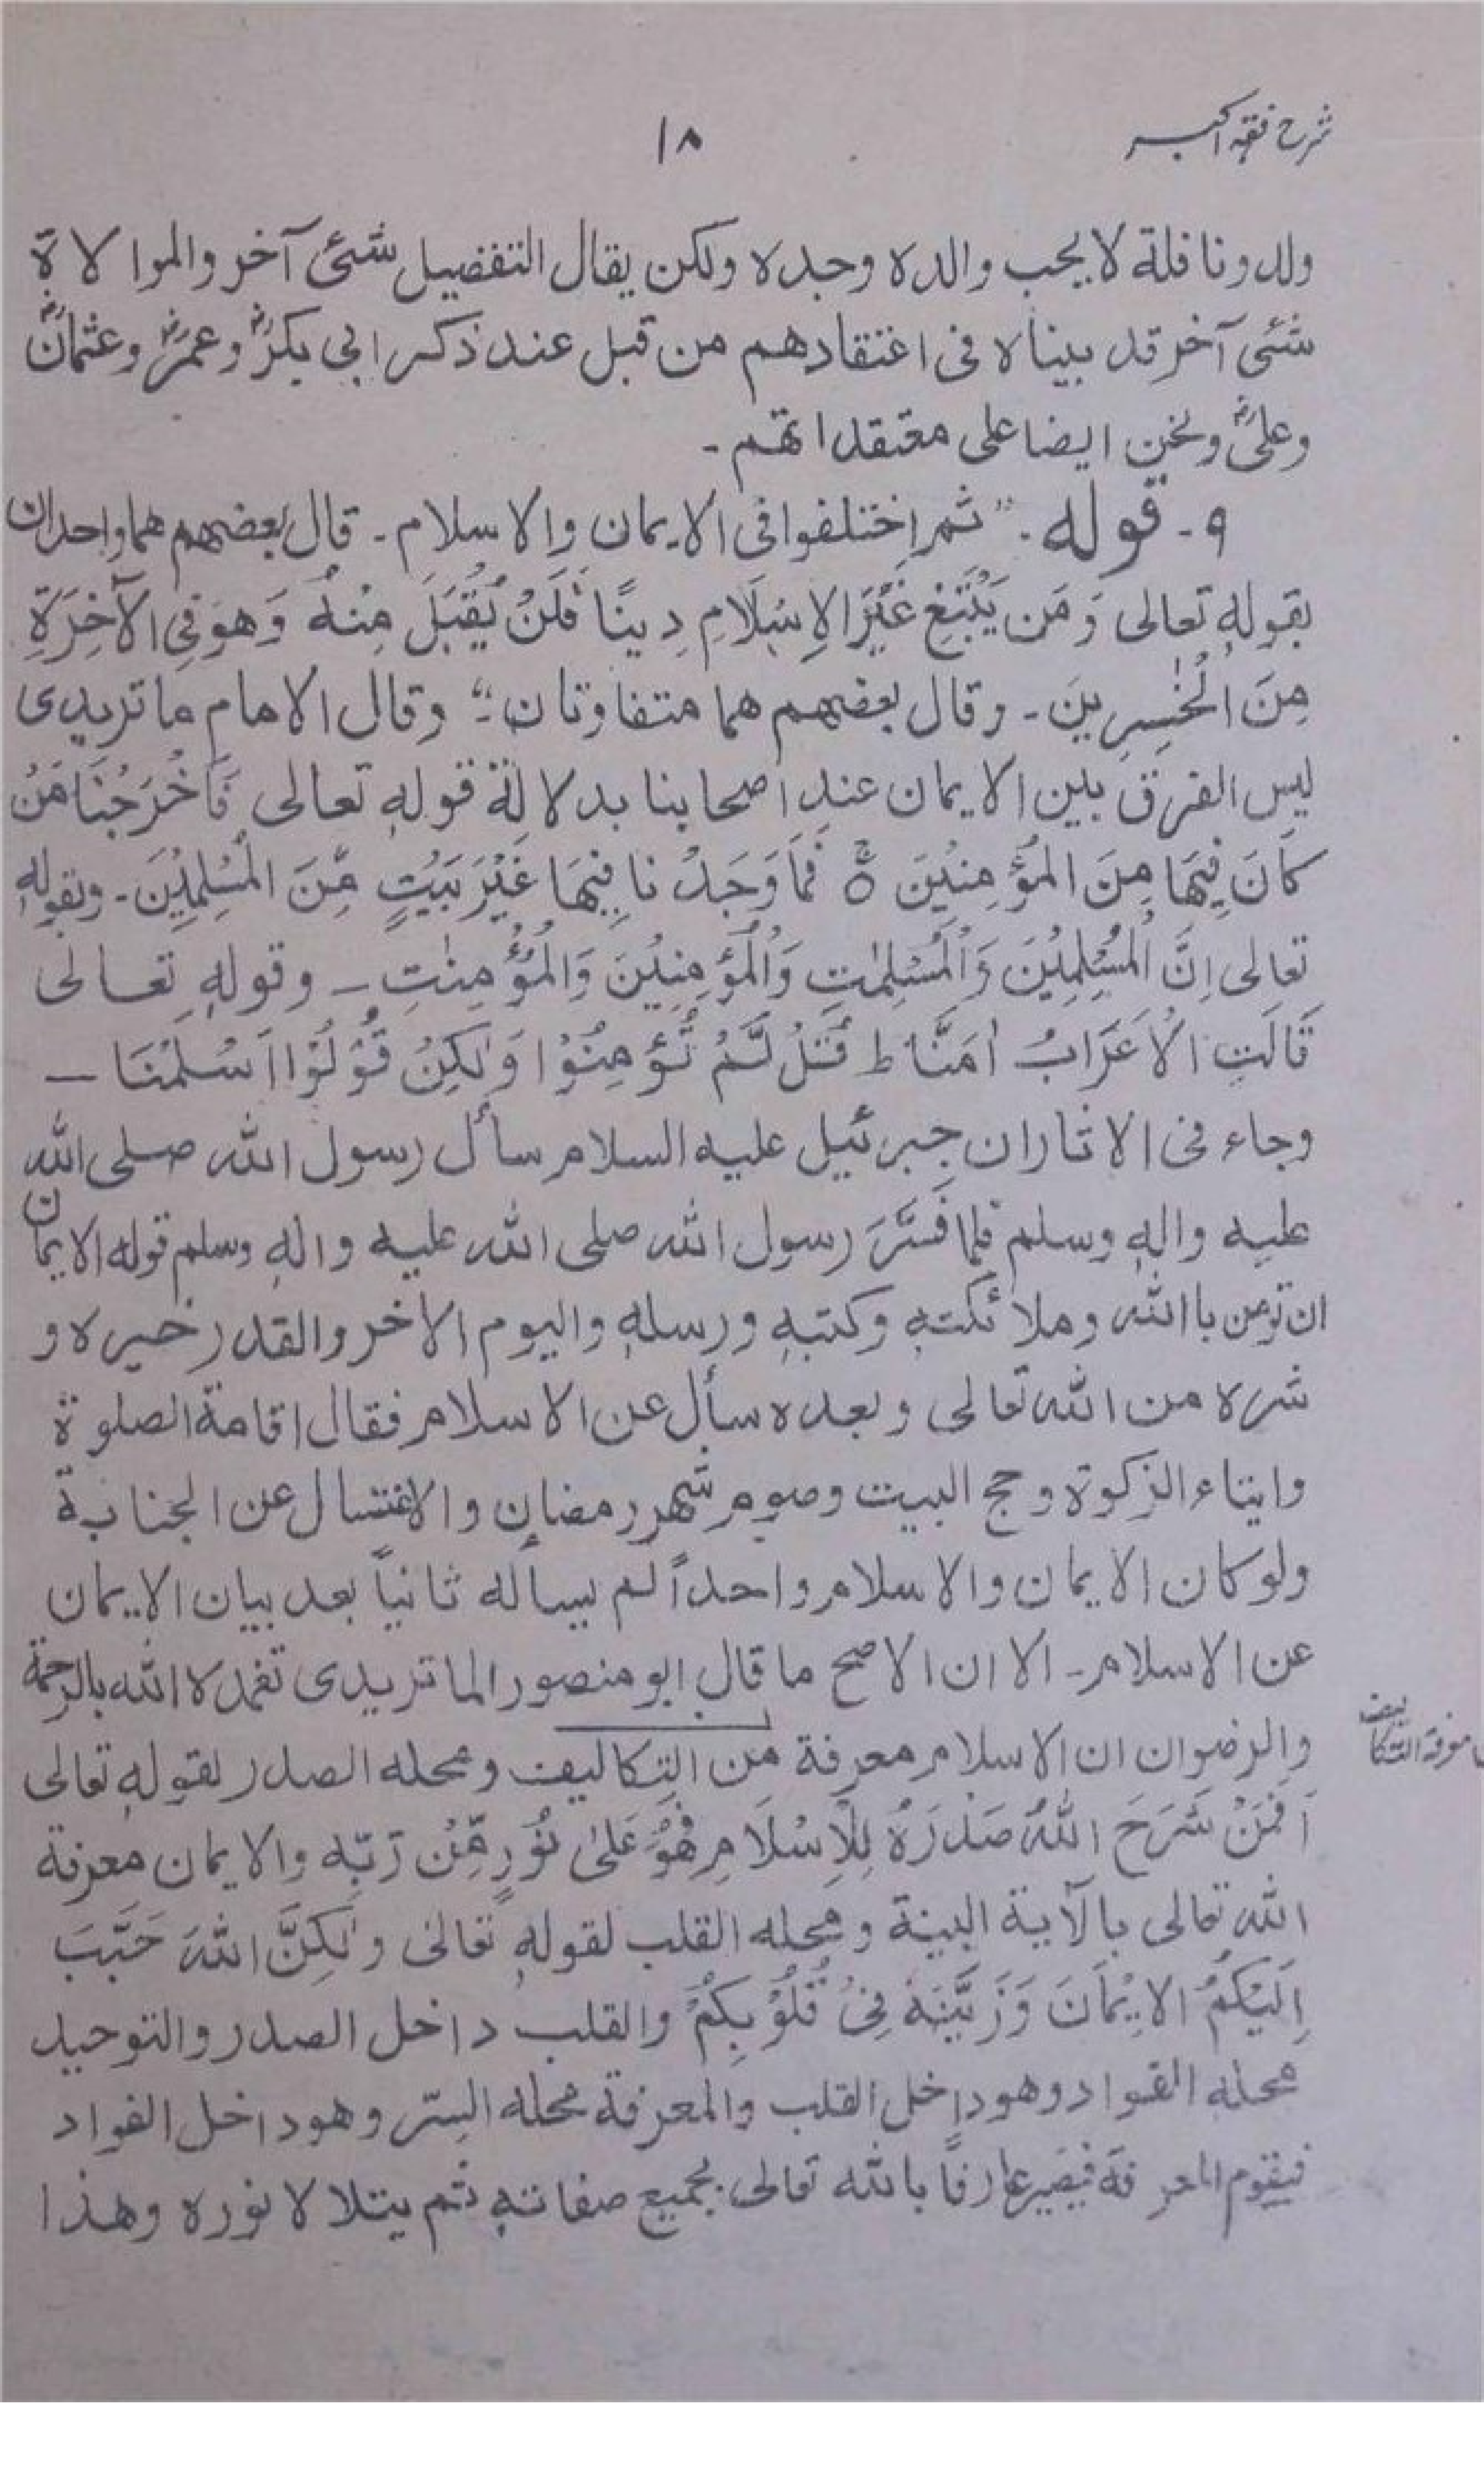 شرح فقه اكبر
١٨
ولد ونافلة لا يحب والده وجده ولكن يقال التفضيل شئ آخر والموالاة
شئ آخر قد بيناه فى اعتقادهم من قبل عند ذكر ابي بكرؓ وعمرؓ وعثمانؓ
وعلىؓ ونحن ايضا على معتقداتهم ۔
٩ ۔ قوله ۔ " ثم اختلفوا فى الايمان والاسلام ۔ قال بعضهم هما واحدان
بقوله تعالى وَمَن يَّبْتَغِ غَيْرَ الْاِسْلَامِ دِينًا فَلَنْ يُّقْبَلَ مِنْهُ وَهُوَ فِى الْآخِرَةِ
مِنَ الْخٰسِرِينَ ۔ وقال بعضهم هما متفاوتان " ۔ وقال الامام ماتريدى
ليس الفرق بين الايمان عند اصحابنا بدلالة قوله تعالى فَاَخْرَجْنَا مَنْ
كَانَ فِيْهَا مِنَ الْمُؤْمِنِيْنَ ۚ ه فَمَا وَجَدْنَا فِيْهَا غَيْرَ بَيْتٍ مِّنَ الْمُسْلِمِيْنَ ۔ وبقوله
تعالى اِنَّ الْمُسْلِمِيْنَ وَالْمُسْلِمٰتِ وَالْمُؤْمِنِيْنَ وَالْمُؤْمِنٰتِ ۔ وقوله تعالى
قَالَتِ الْاَعْرَابُ اٰمَنَّا ط قُلْ لَّمْ تُؤْمِنُوْا وَلٰكِنْ قُوْلُوْا اَسْلَمْنَا ۔
وجاء فى الاثار ان جبرئيل عليه السلام سأل رسول الله صلى الله
عليه واله وسلم فلما فَسَّرَ رسول الله صلى الله عليه واله وسلم قوله الايمان
ان تومن باالله وملائكته وكتبه ورسله واليوم الاخر والقدر خيره و
شره من الله تعالى وبعده سأل عن الاسلام فقال اقامة الصلوة
وايتاء الزكوة وحج البيت وصوم شهر رمضان والاغتسال عن الجنابة
ولو كان الايمان والاسلام واحداً لم يساله ثانياً بعد بيان الايمان
عن الاسلام ۔ الا ان الاصح ما قال ابو منصور الماتريدى تغمده الله بالرحمة
والرضوان ان الاسلام معرفة من التكاليف ومحله الصدر لقوله تعالى
اَفَمَنْ شَرَحَ اللهُ صَدْرَهٗ لِلْاِسْلَامِ فَهُوَ عَلىٰ نُوْرٍ مِّنْ رَّبِّه والايمان معرفة
الله تعالى بالآية البينة ومحله القلب لقوله تعالى ولٰكِنَّ اللهَ حَبَّبَ
اِلَيْكُمُ الاِيْمَانَ وَزَيَّنَهٗ فِىْ قُلُوْبِكُمْ والقلب داخل الصدر والتوحيد
محله الفواد وهو داخل القلب والمعرفة محله السِّر وهو داخل الفواد
فيقوم المعرفة فيصير عارفاً بالله تعالى بجميع صفاته ثم يتلالا نوره وهذا
معرفة التكا